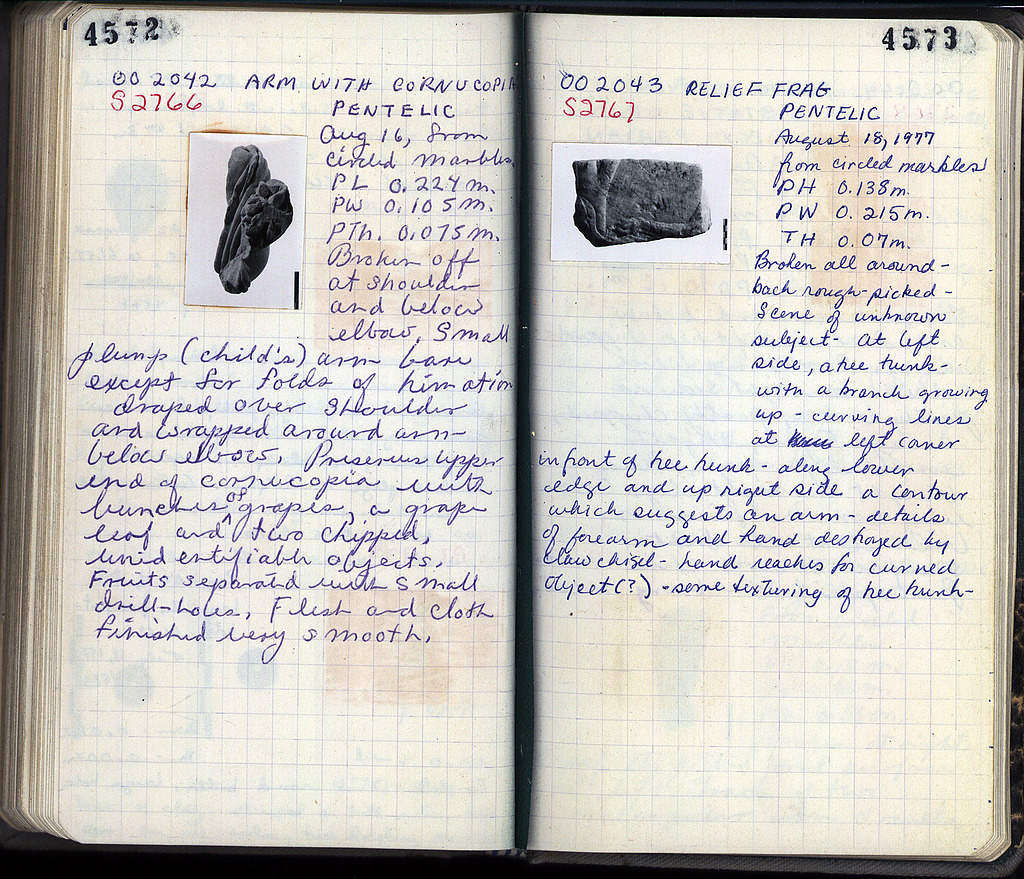 4572
OO 2042 ARM WITH CORNUCOPIA
S2766
PENTELIC
Aug 16, from
circled marbles.
PL 0.224 m.
PW 0.105 m.
PTh. 0.075 m.
Broken off
at shoulder
and below
elbow. Small
plump (child's) arm bare
except for folds of himation
draped over shoulder
and wrapped around arm
below elbow. Preserves upper
end of cornucopia with
bunches of grapes, a grape
leaf and two chipped,
unidentifiable objects.
Fruits separated with small
drill-holes. Flesh and cloth
finished very smooth.
4573
OO 2043 RELIEF FRAG
S2767
PENTELIC
August 18, 1977
from circled marbles
PH 0.138m.
PW 0.215m.
TH 0.07m.
Broken all around -
back rough-picked -
Scene of unknown
subject - at left
side, a tree trunk -
with a branch growing
up - curving lines
at left corner
in front of tree trunk - along lower
edge and up right side a contour
which suggests an arm - details
of forearm and hand destroyed by
claw chisel - hand reaches for curved
object (?) - some texturing of tree trunk -